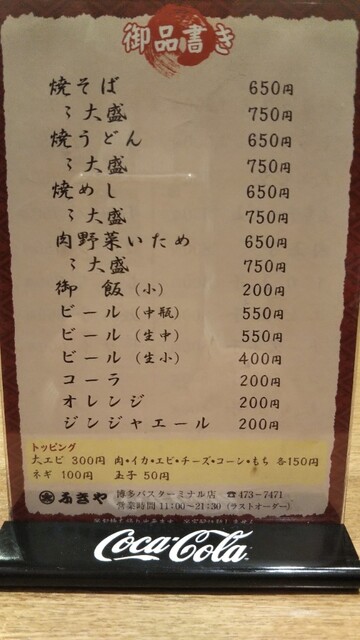 御品書き
焼そば 650円
〃大盛 750円
焼うどん 650円
〃大盛 750円
焼めし 650円
〃大盛 750円
肉野菜いため 650円
〃大盛 750円
御飯(小) 200円
ビール(中瓶) 550円
ビール(生中) 550円
ビール(生小) 400円
コーラ 200円
オレンジ 200円
ジンジャエール 200円
トッピング
大エビ 300円 肉・イカ・エビ・チーズ・コーン・もち 各150円
ネギ 100円 玉子 50円
博多バスターミナル店 ☎473-7471
営業時間 11:00~21:30(ラストオーダー)
Coca-Cola